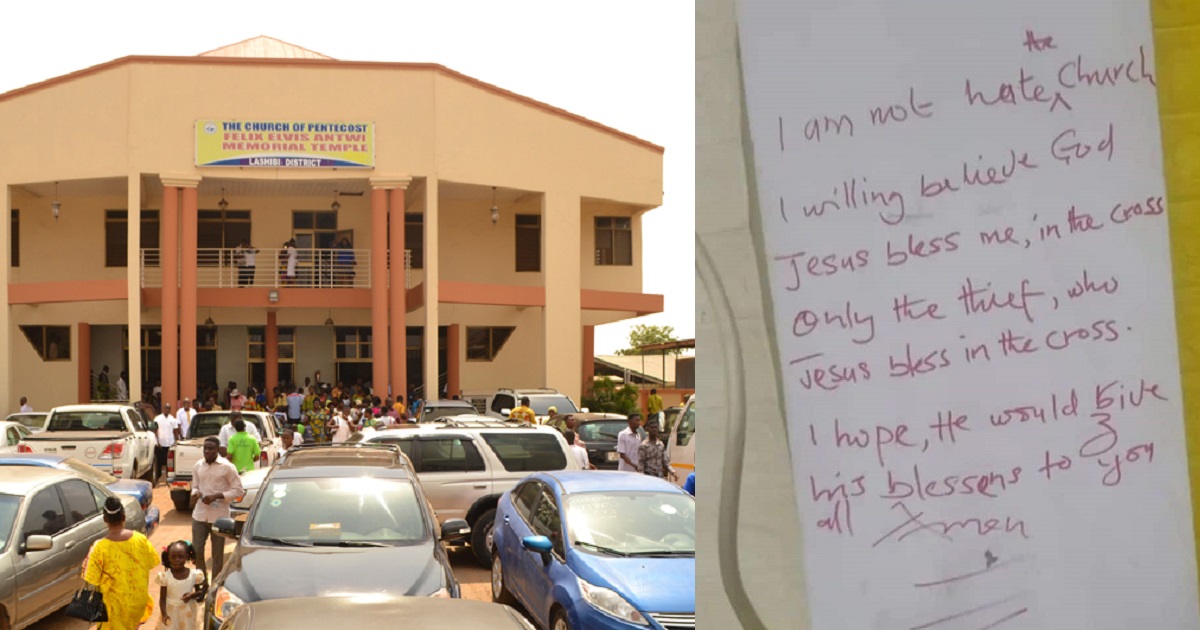 THE CHURCH OF PENTECOST
FELIX ELVIS ANTWI
MEMORIAL TEMPLE
LASHIBI DISTRICT
the
I am not hate church
I willing believe God
Jesus bless me, in the cross
Only the thief, who
Jesus bless in the cross.
I hope, He would give
his blessens to you
all Amen